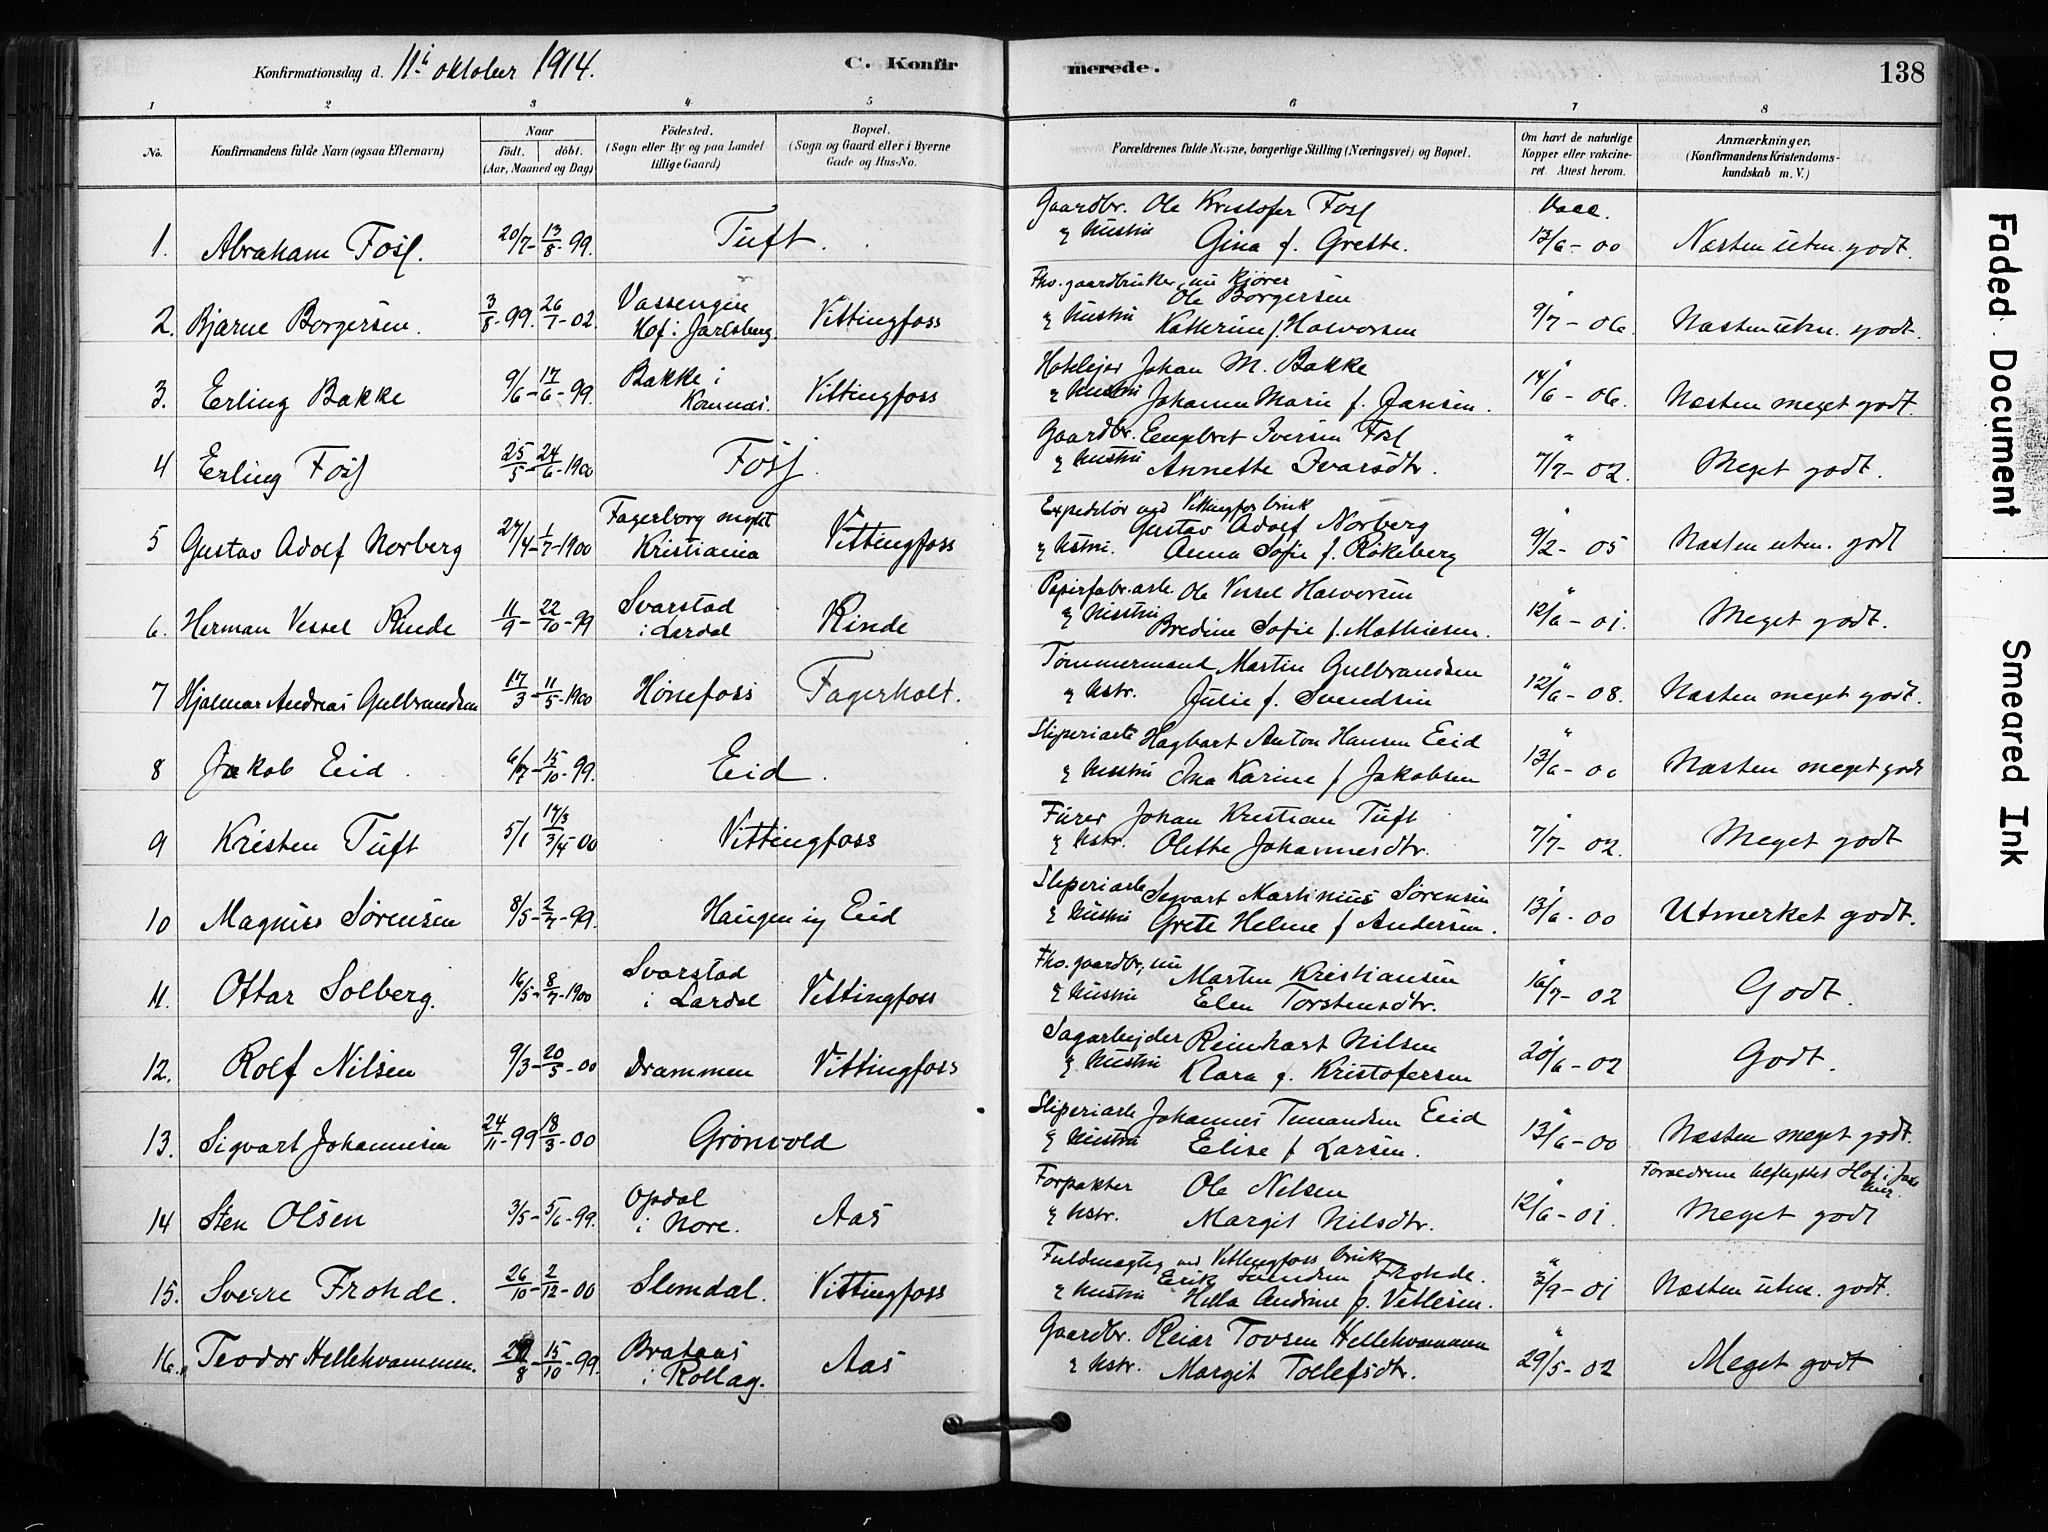 Konfirmationsdag d. 11te oktober 1914.
C. Konfirmerede.
138
1 2 3 4 5 6 7 8
No. Konfirmandens fulde Navn (ogsaa Efternavn)
Naar født. døbt. (Aar, Maaned og Dag)
Födested. (Sogn eller By og paa Landet tillige Gaard)
Bopæl. (Sogn og Gaard eller i Byerne Gade og Hus-No.
Forældrenes fulde Navne, borgerlige Stilling (Næringsvei) og Bopæl.
Om havt de naturlige Kopper eller vakcineret. Attest herom.
Anmærkninger. (Konfirmandens Kristendomskundskab m. V.)
1. Abraham Fosl. 20/7 - 13/8 - 99. Tuft. Gaardbr. Ole Kristofer Fosl Vacc.
& hustru Gina f. Grette. 13/6 - 00 Næsten utm. godt.
2. Bjarne Borgersen. 3/8 - 99. 26/7 - 02. Vassengen Hof i Jarlsberg. Vittingfoss Fhv. gaardbruker, nu kjører Ole Borgersen
& hustru Katherine f. Halvorsen 9/7 - 06. Næsten utm. godt.
3. Erling Bakke 9/6 - 17/6 - 99. Bakke i Komnæs. Vittingfoss Hotelejer Johan M. Bakke
& hustru Johanne Marie f. Jansen. 14/6 - 06. Næsten meget godt.
4 Erling Fosl 25/5 - 24/6 - 1900 Fosl. Gaardbr. Engebret Iversen Fosl
& hustru Annette Ivarsdtr. 7/7 - 02. Meget godt.
5 Gustav Adolf Norberg 27/4 - 1/7 - 1900 Fagerborg Kristiania Vittingfoss Expeditør ved Vittingfos bruk Gustav Adolf Norberg
& hstru. Anna Sofie f. Røkeberg 9/2 - 05 Næsten utm. godt
6. Herman Vessel Rinde 11/9 - 22/10 - 99 Svarstad i Lardal Rinde Papirfabr.arb. Ole Vessel Halvorsen
& hustru Bredine Sofie f. Mathiesen. 12/6 - 01. Meget godt.
7 Hjalmar Andreas Gulbrandsen 17/3 - 11/5 - 1900 Hønefoss Fagerholt. Tømmermand Martin Gulbrandsen
& hstr. Julie f. Svendsen 12/6 - 08. Næsten meget godt.
8 Jakob Eid. 6/7 - 15/10 - 99. Eid. Sliperiarb Hagbart Anton Hansen Eid
& hustru Ina Karine f Jakobsen 13/6 - 00 Næsten meget godt
9 Kristen Tuft 5/1 17/3 3/4 00 Vittingfoss Fürer Johan Kristian Tuft
& hstr. Olette Johannesdtr. 7/7 - 02. Meget godt
10 Magnus Sørensen 8/5 - 2/7 - 99. Haugen Eid Sliperiarb Segvart Martinius Sørensen
& hustru Grete Helene f Andersen. 13/6 - 00 Utmerket godt.
11. Ottar Solberg. 16/5 - 8/7 - 1900 Svarstad i Lardal Vittingfoss Fhv. gaardbr, nu Marten Kristiansen
& hustru Elen Torstensdtr. 16/7 - 02 Godt.
12. Rolf Nilsen 9/3 - 20/5 - 00 Drammen Vittingfoss Sagarbejder Reinhart Nilsen
& hustru Klara f. Kristofersen 20/6 - 02 Godt.
13. Sigvart Johannesen 24/11 - 99 18/3 - 00 Grønvold Sliperiarb Johannes Eid
& hustru Elise f Larsen. 13/6 - 00 Næsten meget godt.
14 Sten Olsen 3/5 - 5/6 - 99. Opdal i Nore. Aas Forpakter Ole Nilsen Forældrene utflyttet Hof i
& hstr. Margit Nilsdtr. 12/6 - 01. Meget godt
15. Sverre Frohde. 26/10 - 2/12 - 00 Slemdal. Vittingfoss Fuldmægtig ved Vittingfoss bruk Erik Svendsen Frohde.
& hustru Hella Andrine f. Vetlesen. 2/9 - 01 Næsten utm. godt.
16. Teodor Hellekvammen. /8 - 15/10 - 99. Brataas i Rollag. Aas Gaardbr. Reiar Tovsen Hellekvammen
& hstr. Margit Tollefsdtr. 29/5 - 02 Meget godt
Faded Document
Smeared Ink